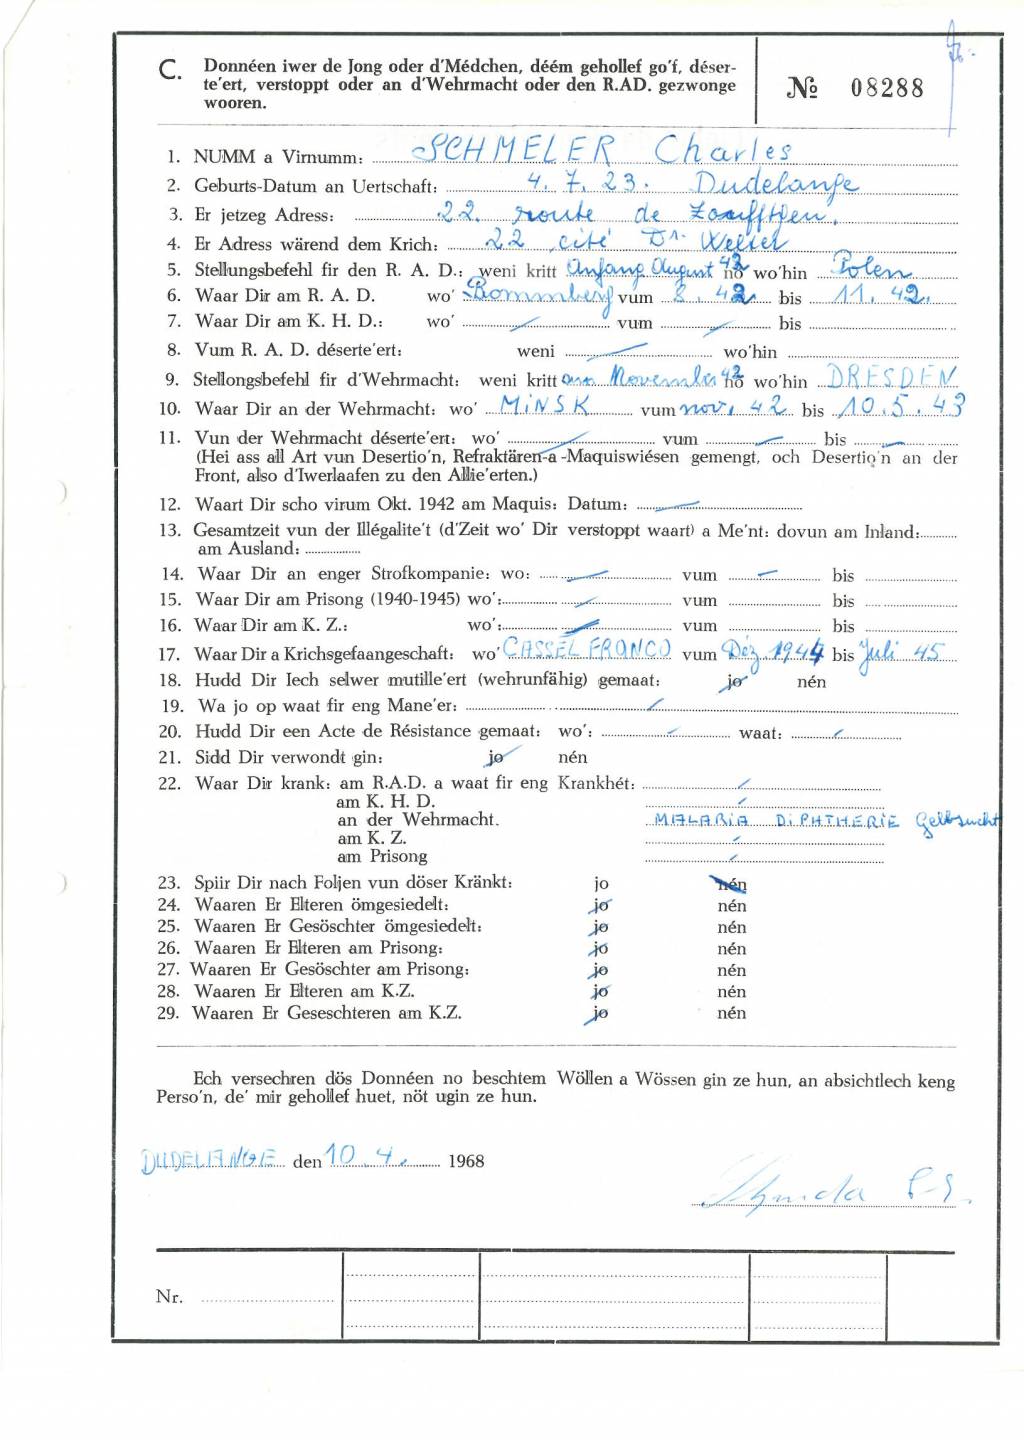 C. Donnéen iwer de Jong oder d'Médchen, déém gehollef go'f, déser-
te'ert, verstoppt oder an d'Wehrmacht oder den R.AD. gezwonge
wooren.
№ 08288
1. NUMM a Virnumm: SCHMELER Charles
2. Geburts-Datum an Uertschaft: 4. 7. 23. Dudelange
3. Er jetzeg Adress: 22. route de Zoufftgen.
4. Er Adress wärend dem Krich: 22 cité Dr. Welter
5. Stellungsbefehl fir den R. A. D.: weni kritt Anfang August 42 no wo'hin Polen
6. Waar Dir am R. A. D. wo' Rommberg vum 8. 42. bis 11. 42.
7. Waar Dir am K. H. D.: wo' vum bis
8. Vum R. A. D. déserte'ert: weni wo'hin
9. Stellongsbefehl fir d'Wehrmacht: weni kritt am November 42 no wo'hin DRESDEN
10. Waar Dir an der Wehrmacht: wo' MiNSK vum nov. 42 bis 10.5.43
11. Vun der Wehrmacht déserte'ert: wo' vum bis
(Hei ass all Art vun Desertio'n, Refraktären-a -Maquiswiésen gemengt, och Desertio'n an der
Front, also d'Iwerlaafen zu den Allie'erten.)
12. Waart Dir scho virum Okt. 1942 am Maquis: Datum:
13. Gesamtzeit vun der Illégalite't (d'Zeit wo' Dir verstoppt waart) a Me'nt: dovun am Inland:
am Ausland:
14. Waar Dir an enger Strofkompanie: wo: vum bis
15. Waar Dir am Prisong (1940-1945) wo': vum bis
16. Waar Dir am K. Z.: wo': vum bis
17. Waar Dir a Krichsgefaangeschaft: wo' CASSEL FRANCO vum Déz 1944 bis Juli 45
18. Hudd Dir Iech selwer mutille'ert (wehrunfähig) gemaat: jo nén
19. Wa jo op waat fir eng Mane'er:
20. Hudd Dir een Acte de Résistance gemaat: wo': waat:
21. Sidd Dir verwondt gin: jo nén
22. Waar Dir krank: am R.A.D. a waat fir eng Krankhét:
am K. H. D.
an der Wehrmacht. MALARiA DiPHTHERiE Gelbsucht
am K. Z.
am Prisong
23. Spiir Dir nach Foljen vun döser Kränkt: jo nén
24. Waaren Er Elteren ömgesiedelt: jo nén
25. Waaren Er Gesöschter ömgesiedelt: jo nén
26. Waaren Er Elteren am Prisong: jo nén
27. Waaren Er Gesöschter am Prisong: jo nén
28. Waaren Er Elteren am K.Z. jo nén
29. Waaren Er Geseschteren am K.Z. jo nén
Ech versechren dös Donnéen no beschtem Wöllen a Wössen gin ze hun, an absichtlech keng
Perso'n, de' mir gehollef huet, nöt ugin ze hun.
DUDELANGE den 10. 4. 1968
Nr.